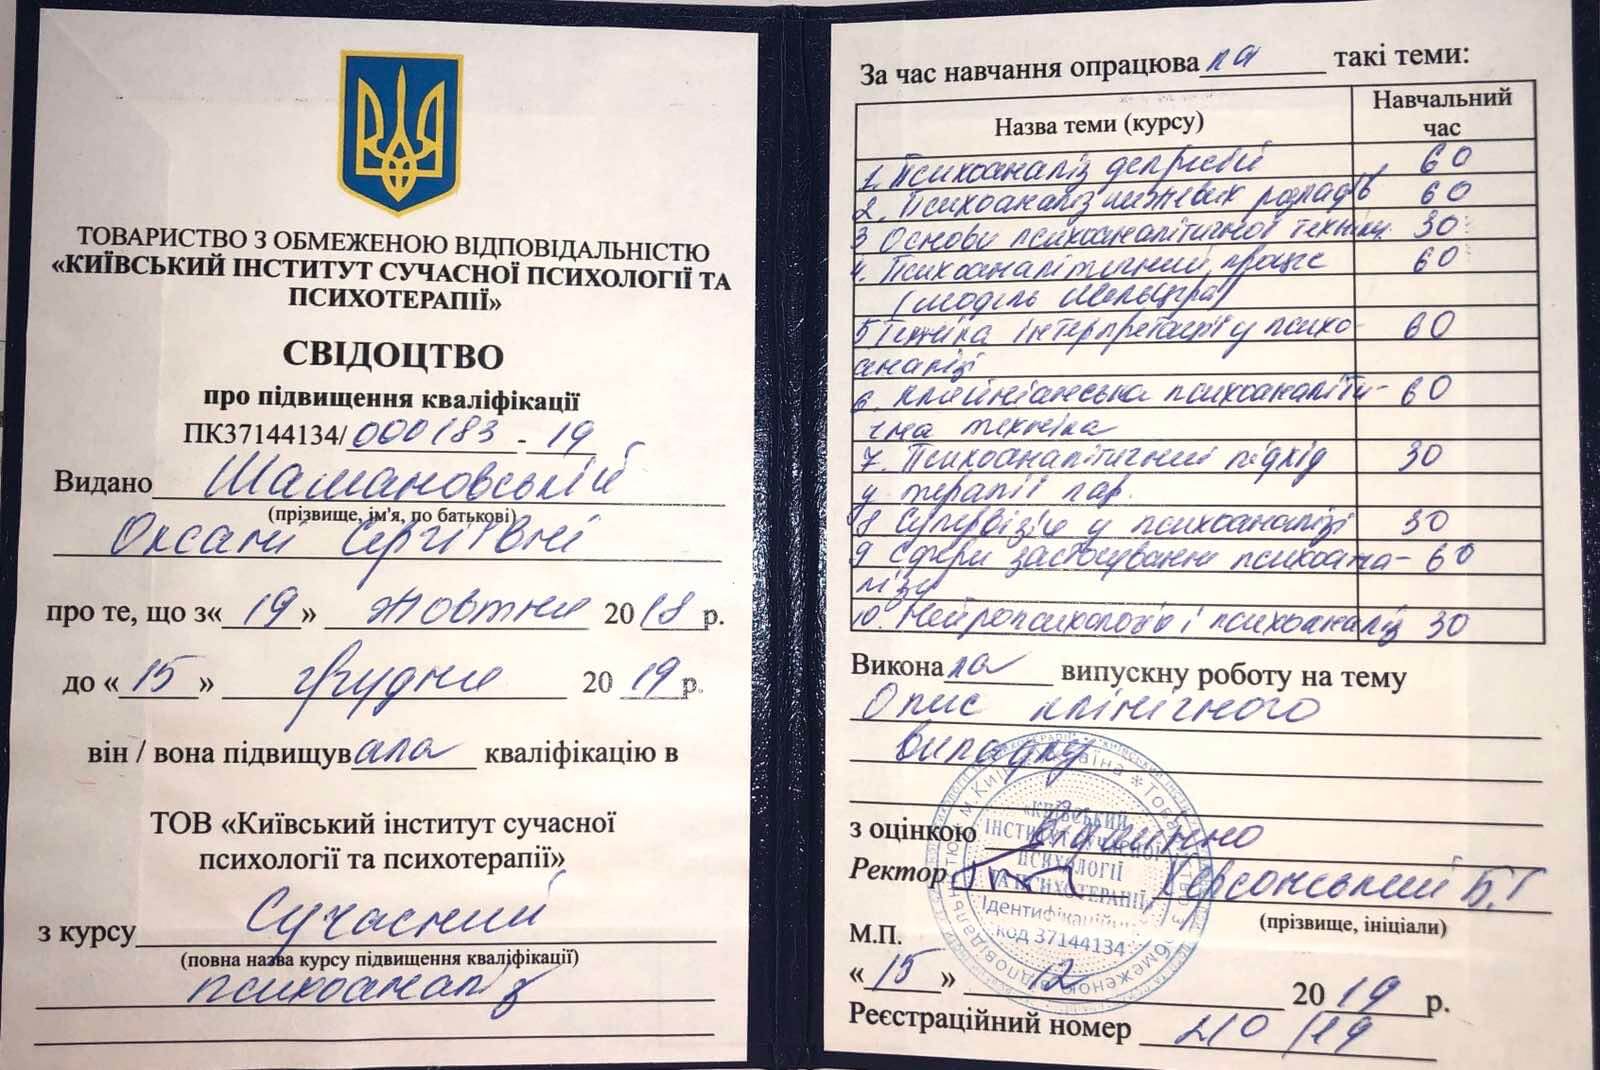 ТОВАРИСТВО З ОБМЕЖЕНОЮ ВІДПОВІДАЛЬНІСТЮ
«КИЇВСЬКИЙ ІНСТИТУТ СУЧАСНОЇ ПСИХОЛОГІЇ ТА
ПСИХОТЕРАПІЇ»
СВІДОЦТВО
про підвищення кваліфікації
ПК37144134/000183 - 19
Видано Шамановській
(прізвище, ім'я, по батькові)
Оксані Сергіївні
про те, що з« 19 » жовтня 20 18 р.
до « 15 » грудня 20 19 р.
він / вона підвищувала кваліфікацію в
ТОВ «Київський інститут сучасної
психології та психотерапії»
з курсу Сучасний
(повна назва курсу підвищення кваліфікації)
психоаналіз
За час навчання опрацювала такі теми:
Назва теми (курсу) Навчальний час
1. Психоаналіз депресій 60
2. Психоаналіз розладів 60
3 Основи психоаналітичної техніки 30
4. Психоаналітичний процес 60
(модель Мельцера)
5 Техніка інтерпретації у психо- 60
аналізі
6. Кляйніанська психоаналіти- 60
чна техніка
7. Психоаналітичний підхід 30
у терапії пар.
8 Супервізія у психоаналізі 30
9 Сфери застосування психоана- 60
лізу
10. Нейропсихологія і психоаналіз 30
Виконала випускну роботу на тему
Опис клінічного
випадку
з оцінкою відмінно
Ректор Херсонський Б.Г
(прізвище, ініціали)
М.П.
« 15 » 12 20 19 р.
Реєстраційний номер 210/19
«КИЇВСЬКИЙ
ІНСТИТУТ СУЧАСНОЇ
ПСИХОЛОГІЇ
ТА ПСИХОТЕРАПІЇ»
Ідентифікаційний
код 37144134